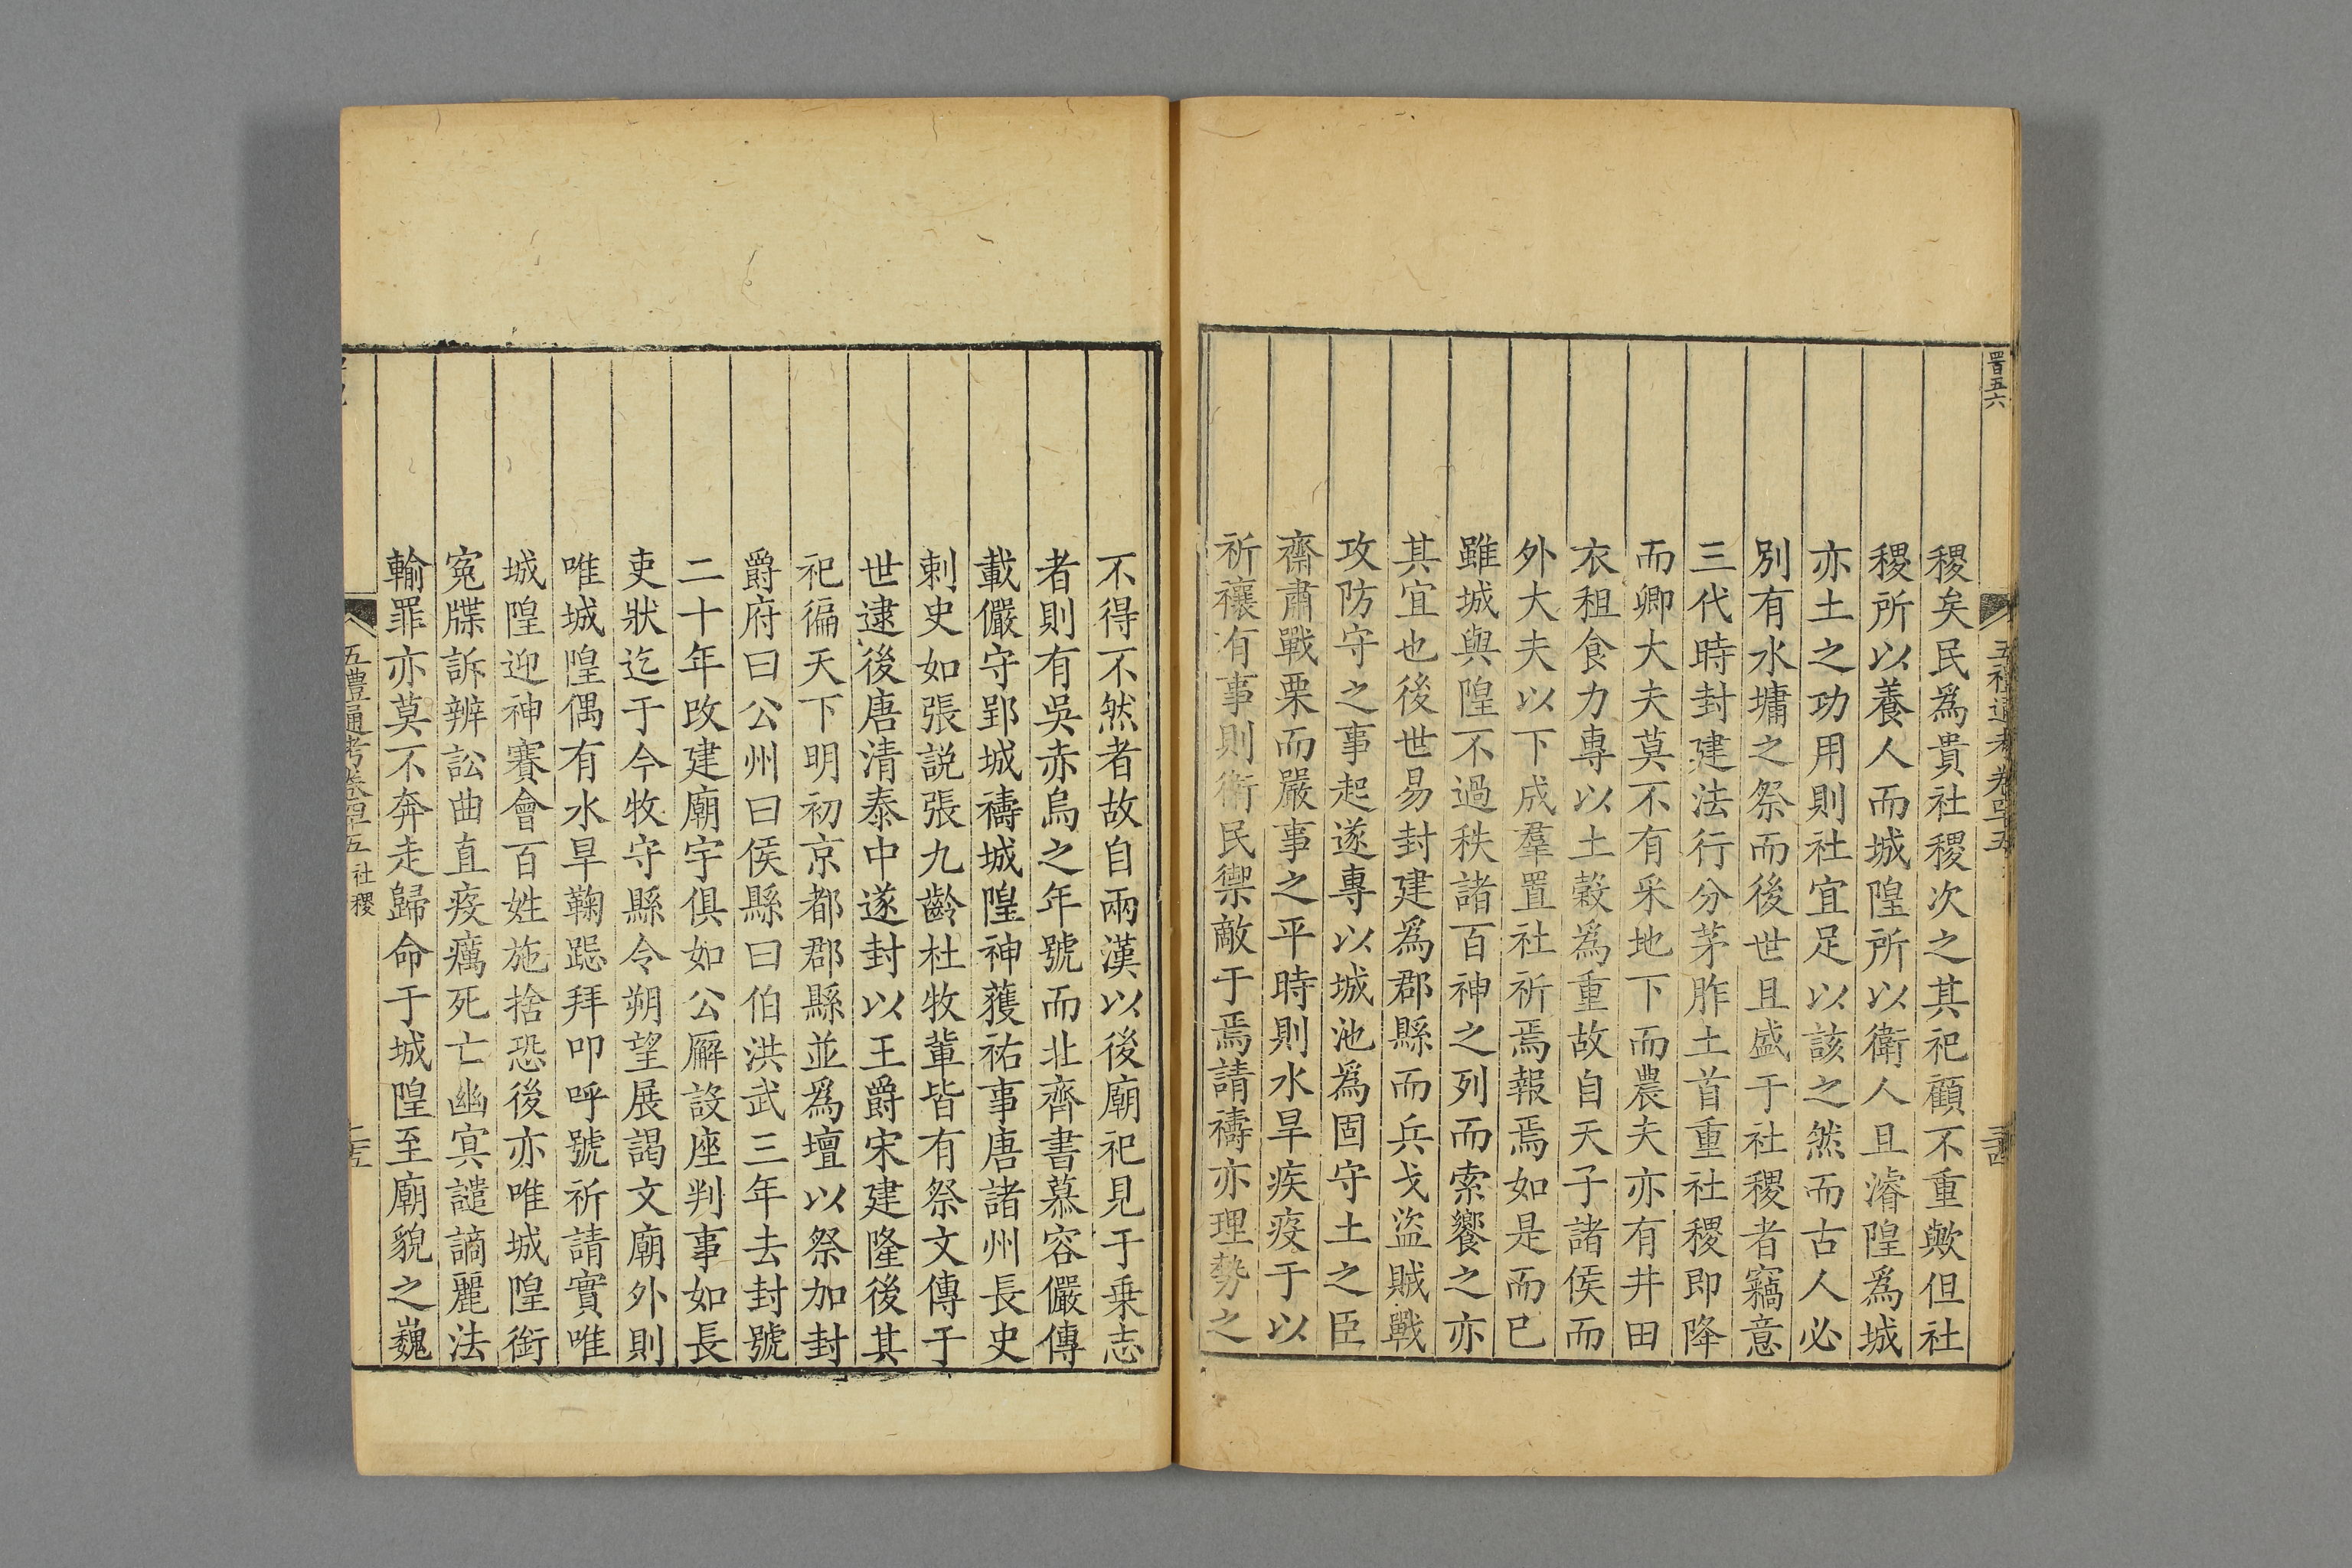 五禮通考卷四十五
稷矣民爲貴社稷次之其祀顧不重歟但社
稷所以養人而城隍所以衛人且濬隍爲城
亦土之功用則社宜足以該之然而古人必
別有水墉之祭而後世且盛于社稷者竊意
三代時封建法行分茅胙土首重社稷即降
而卿大夫莫不有采地下而農夫亦有井田
衣租食力專以土穀為重故自天子諸侯而
外大夫以下成羣置社祈焉報焉如是而已
雖城與隍不過秩諸百神之列而索饗之亦
其宜也後世易封建爲郡縣而兵戈盜賊戰
攻防守之事起遂專以城池爲固守土之臣
齋肅戰栗而嚴事之平時則水旱疾疫于以
祈禳有事則衛民禦敵于焉請禱亦理勢之
不得不然者故自兩漢以後廟祀見于乗志
者則有吳赤烏之年號而北齊書慕容儼傳
載儼守郢城禱城隍神蒦祐事唐諸州長史
刺史如張説張九齡杜牧輩皆有祭文傳于
世逮後唐清泰中遂封以王爵宋建隆後其
祀徧天下明初京都郡縣並爲壇以祭加封
爵府曰公州曰侯縣曰伯洪武三年去封號
二十年改建廟宇俱如公廨設座判事如長
吏狀迄于今牧守縣令朔望展謁文廟外則
唯城隍偶有水旱鞠跽拜叩呼號祈請實唯
城隍迎神賽會百姓施捨恐後亦唯城隍銜
寃牒訴辨訟曲直疫癘死亡幽冥譴謫麗法
輸罪亦莫不奔走歸命于城隍至廟貌之巍
五禮通考卷四十五 社稷